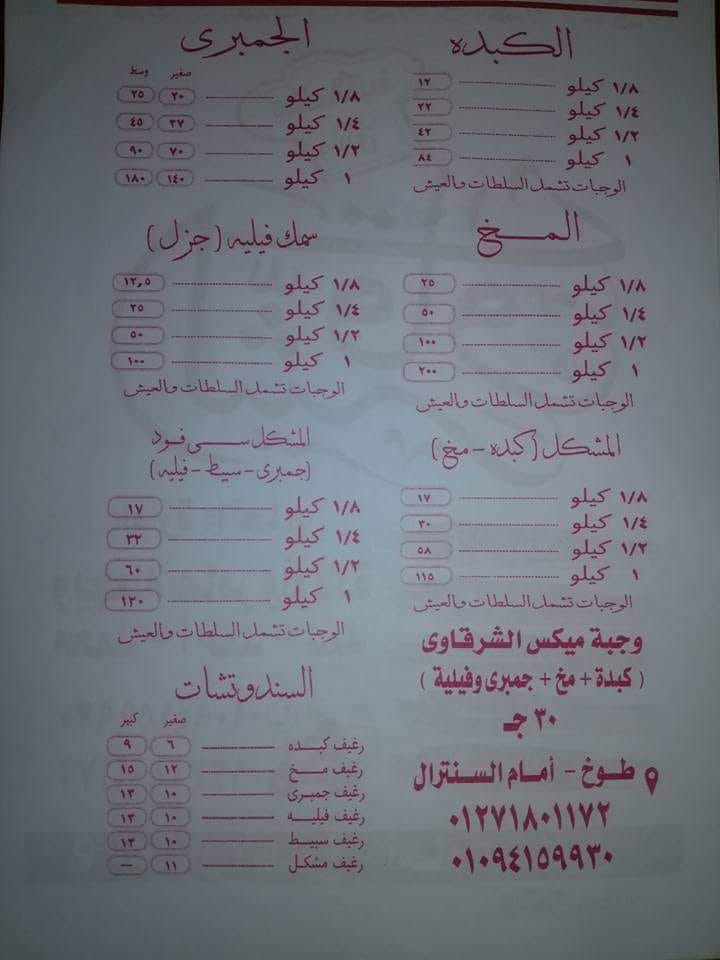 الكبده
١/٨ كيلو ١٢
١/٤ كيلو ٢٢
١/٢ كيلو ٤٢
١ كيلو ٨٤
الوجبات تشمل السلطات والعيش
المخ
١/٨ كيلو ٢٥
١/٤ كيلو ٥٠
١/٢ كيلو ١٠٠
١ كيلو ٢٠٠
الوجبات تشمل السلطات والعيش
المشكل (كبده - مخ)
١/٨ كيلو ١٧
١/٤ كيلو ٣٠
١/٢ كيلو ٥٨
١ كيلو ١١٥
الوجبات تشمل السلطات والعيش
وجبة ميكس الشرقاوى
(كبدة + مخ + جمبرى وفيلية)
٣٠ جـ
طوخ - أمام السنترال
٠١٢٧١٨٠١١٧٢
٠١٠٩٤١٥٩٩٣٠
الجمبرى
صغير وسط
١/٨ كيلو ٢٠ ٢٥
١/٤ كيلو ٣٧ ٤٥
١/٢ كيلو ٧٠ ٩٠
١ كيلو ١٤٠ ١٨٠
سمك فيليه (جزل)
١/٨ كيلو ١٢,٥
١/٤ كيلو ٢٥
١/٢ كيلو ٥٠
١ كيلو ١٠٠
الوجبات تشمل السلطات والعيش
المشكل سى فود
(جمبرى - سيط - فيليه)
١/٨ كيلو ١٧
١/٤ كيلو ٣٢
١/٢ كيلو ٦٠
١ كيلو ١٢٠
الوجبات تشمل السلطات والعيش
السندوتشات
صغير كبير
رغيف كبده ٦ ٩
رغيف مخ ١٢ ١٥
رغيف جمبرى ١٠ ١٣
رغيف فيليه ١٠ ١٣
رغيف سبيط ١٠ ١٣
رغيف مشكل ١١ —